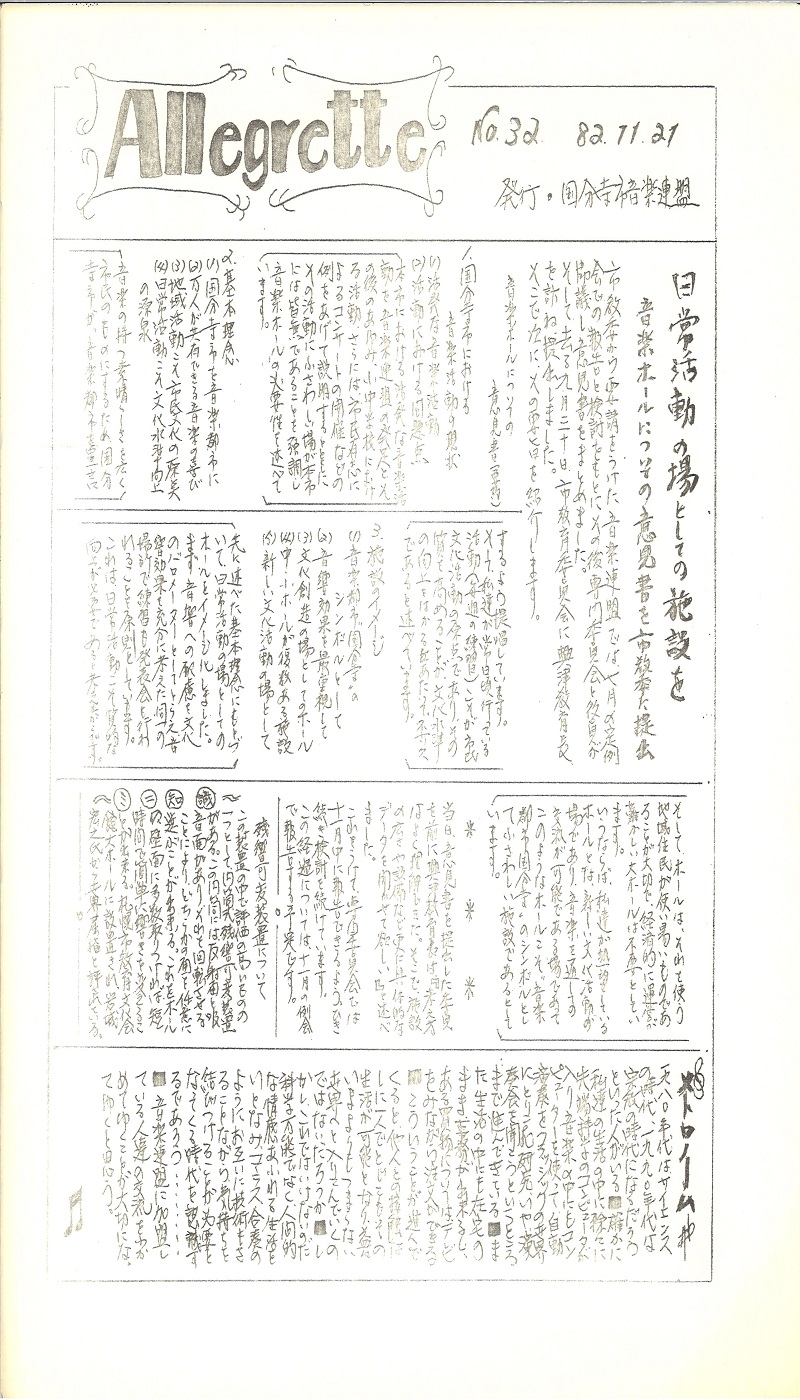 Allegrette
No.32 82.11.21
発行。国分寺市音楽連盟
日常活動の場としての施設を
音楽ホールについての意見書を市教委に提出
市教委から要請をうけた音楽連盟では七月の定例
会での報告と検討をもとにその後専門委員会と役員が
協議し意見書をまとめました。
そして去る九月三十日、市教育委員会に興津教育長
を訪ね提出しました。
そこで次に、その要旨を紹介します。
音楽ホールについての
意見書(要約)
1.国分寺市における
音楽活動の現状
(1)活発な音楽活動
(2)活動における問題点
本市における活発な音楽活
動を音楽連盟の発足とそ
の後のあゆみ、小中学校におけ
る活動、さらには市民有志に
よるコンサートの開催などの
例をあげて説明するとともに
その活動にふさわしい場が本市
には皆無であることを強調し
音楽ホールの必要性を述べて
います。
2.基本理念
(1)国分寺市を音楽都市に
(2)万人が共有できる音楽の喜び
(3)地域活動こそ市民文化の原点
(4)日常活動こそ文化水準向上
の源泉
音楽の持つ素晴らしさを広く
市民のものにするため国分
寺市が、音楽都市を宣言
するよう提唱しています。
そして私達が常日頃行ってる
活動(毎週の練習)こそが市民
文化活動の原点であり、その
質を高めることが、文化水準
の向上をはかる
であると述べています。
3.施設のイメージ
(1)音楽都市国分寺の
シンボルとして
(2)音響効果を最重視して
(3)文化創造の場としてのホール
(4)中・小ホールが複数ある施設
(5)新しい文化活動の場として
先に述べた基本理念にもとづ
いて日常活動の場としての
ホールをイメージ化しました。
まず、音響への配慮を文化
のバロメーターとしてとらえ音
響効果を充分に考えた同一の
場所で練習も発表会も行わ
れることを原則としています。
これは日常活動こそ質的な
向上が必要であると考えるからです。
そして、ホールは、それを使う
地域住民が使い易いものであ
ることが大切で、経済的に運営が
難かしい大ホールは不要としてい
ます。
いうならば、私達が熱望している
ホールとは、新しい文化活動の
場であり、音楽を通しての
交流が可能である場であって
このようなホールこそ、音楽
都市国分寺のシンボルとし
てふさわしい施設であるとして
います。
＊ ＊ ＊
当日、意見書を提出した委員
を前に興津教育長は、主旨
はよく理解できた。そこで、施設
の広さや設備など更に具体的な
データを聞かせて欲しいと述べ
ました。
これをうけて専門委員会では
十一月中に報告できるようひき
続き検討を続けています。
この経過については十一月の例会
で報告する予定です。
残響可変装置について
この装置の中で評価の高いもの
一つとして円筒式残響可変装置
がある。この円筒には反射面と吸
音面があり、それを回転させる
ことにより、どちらかの面を任意に
選ぶことが出来る。これをホール
の壁面に多数取りつければ、短
時間で簡単に響きを変えるこ
とが出来る。
〜豆知識〜
メトロノーム
一九八〇年代はサイエンス
の時代、一九九〇年代は
宗教の時代になるだろう
といった人がいる■確かに
私達の生活の中に徐々に
先端技術のコンピュータが
入り音楽の中にもコン
ピューターを使って自動
演奏をクラシックの世界
にとり入れ研究、いや演
奏会を開こうというところ
まで進んできている■ま
た生活の中にも在宅の
まま言葉が出来るし、
ある買物についてはテレビ
をみながら注文ができる
■こういうことが進んで
くると、他人との接触な
しに一人でとじこもりの
生活が可能となり、益々
いままよりもつまらない
世界へと入りこんでいくの
ではないだろうか■し
かし、これではいけないのだ
科学万能でなく人間的
な情感あふれる生活を
いとなみ、コーラス、合奏の
ようにお互いに技術をさ
ることながら気持ちを
結びつけることが、必要と
なってくる時代を認識す
るであろう……
■音楽連盟に加盟し
ている人達の交流をふか
めてゆくことが大切にな
てゆくと思う。